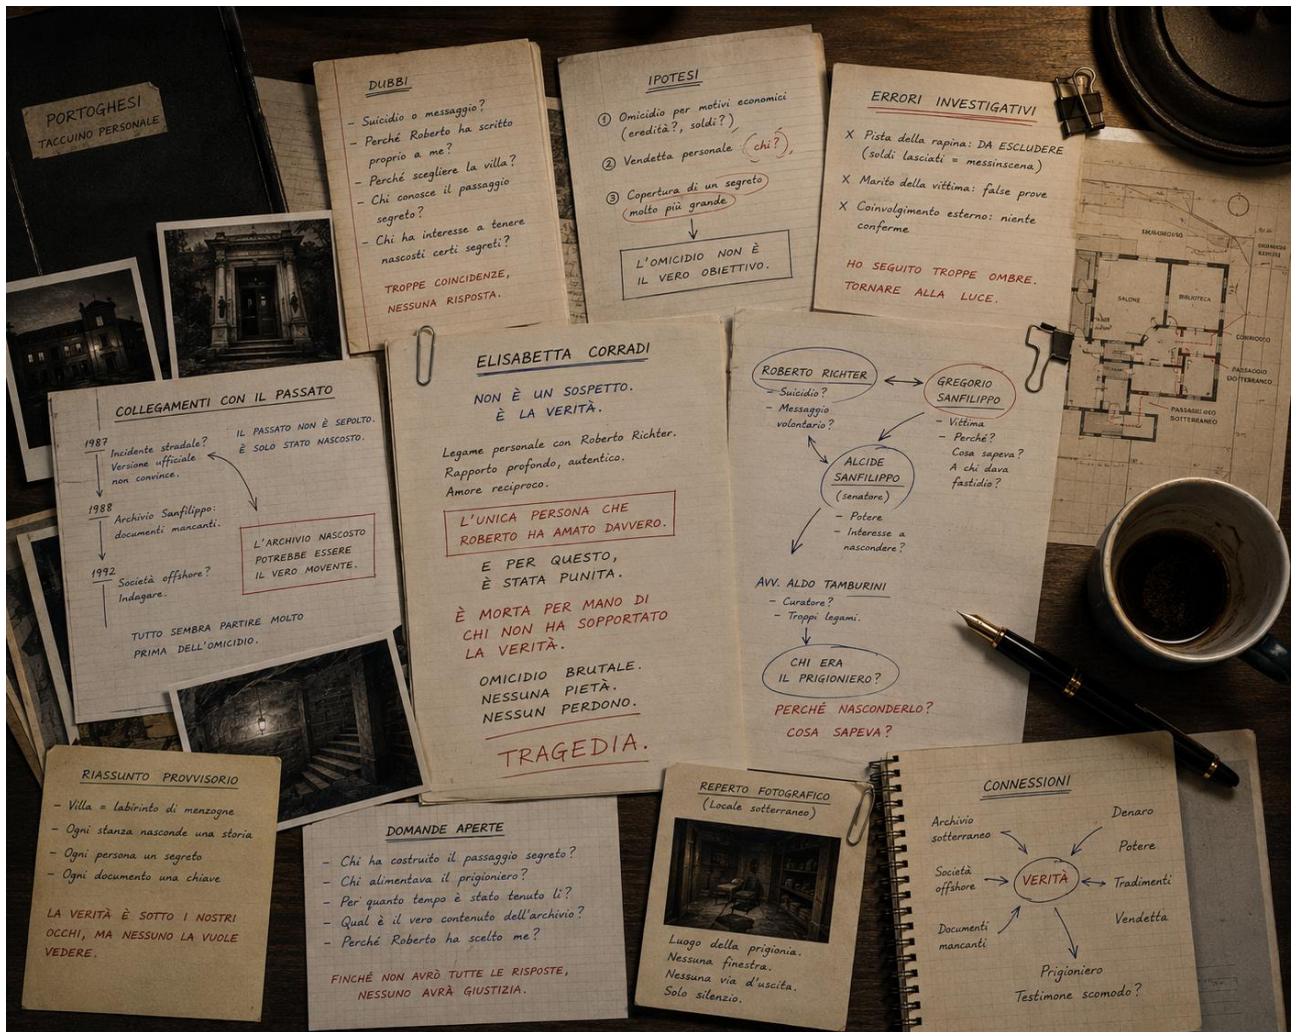 PORTOGHESI
TACCUINO PERSONALE
DUBBI
– Suicidio o messaggio?
– Perché Roberto ha scritto
proprio a me?
– Perché scegliere la villa?
– Chi conosce il passaggio
segreto?
– Chi ha interesse a tenere
nascosti certi segreti?
TROPPE COINCIDENZE,
NESSUNA RISPOSTA.
IPOTESI
1 Omicidio per motivi economici
(eredità?, soldi?)
2 Vendetta personale (chi?),
3 Copertura di un segreto
molto più grande
L'OMICIDIO NON È
IL VERO OBIETTIVO.
ERRORI INVESTIGATIVI
X Pista della rapina: DA ESCLUDERE
(soldi lasciati = messinscena)
X Marito della vittima: false prove
X Coinvolgimento esterno: niente
conferme
HO SEGUITO TROPPE OMBRE.
TORNARE ALLA LUCE.
SALONE
BIBLIOTECA
CORRIDOIO
PASSAGGIO
SOTTERRANEO
PASSAGGIO
SOTTERRANEO
COLLEGAMENTI CON IL PASSATO
1987
Incidente stradale?
Versione ufficiale
non convince.
IL PASSATO NON È SEPOLTO.
È SOLO STATO NASCOSTO.
1988
Archivio Sanfilippo:
documenti mancanti.
L'ARCHIVIO NASCOSTO
POTREBBE ESSERE
IL VERO MOVENTE.
1992
Società offshore?
Indagare.
TUTTO SEMBRA PARTIRE MOLTO
PRIMA DELL'OMICIDIO.
ELISABETTA CORRADI
NON È UN SOSPETTO.
È LA VERITÀ.
Legame personale con Roberto Richter.
Rapporto profondo, autentico.
Amore reciproco.
L'UNICA PERSONA CHE
ROBERTO HA AMATO DAVVERO.
E PER QUESTO,
È STATA PUNITA.
È MORTA PER MANO DI
CHI NON HA SOPPORTATO
LA VERITÀ.
OMICIDIO BRUTALE.
NESSUNA PIETÀ.
NESSUN PERDONO.
TRAGEDIA.
ROBERTO RICHTER
– Suicidio?
– Messaggio
volontario?
GREGORIO
SANFILIPPO
– Vittima
– Perché?
Cosa sapeva?
A chi dava
fastidio?
ALCIDE
SANFILIPPO
(senatore)
– Potere
– Interesse a
nascondere?
AVV. ALDO TAMBURINI
– Curatore?
– Troppi legami.
CHI ERA
IL PRIGIONIERO?
PERCHÉ NASCONDERLO?
COSA SAPEVA?
RIASSUNTO PROVVISORIO
– Villa = labirinto di menzogne
– Ogni stanza nasconde una storia
– Ogni persona un segreto
– Ogni documento una chiave
LA VERITÀ È SOTTO I NOSTRI
OCCHI, MA NESSUNO LA VUOLE
VEDERE.
DOMANDE APERTE
– Chi ha costruito il passaggio segreto?
– Chi alimentava il prigioniero?
– Per quanto tempo è stato tenuto lì?
– Qual è il vero contenuto dell'archivio?
– Perché Roberto ha scelto me?
FINCHÉ NON AVRÒ TUTTE LE RISPOSTE,
NESSUNO AVRÀ GIUSTIZIA.
REPERTO FOTOGRAFICO
(Locale sotterraneo)
Luogo della prigionia.
Nessuna finestra.
Nessuna via d'uscita.
Solo silenzio.
CONNESSIONI
Archivio
sotterraneo
Denaro
Potere
Società
offshore
VERITÀ
Tradimenti
Documenti
mancanti
Vendetta
Prigioniero
Testimone scomodo?